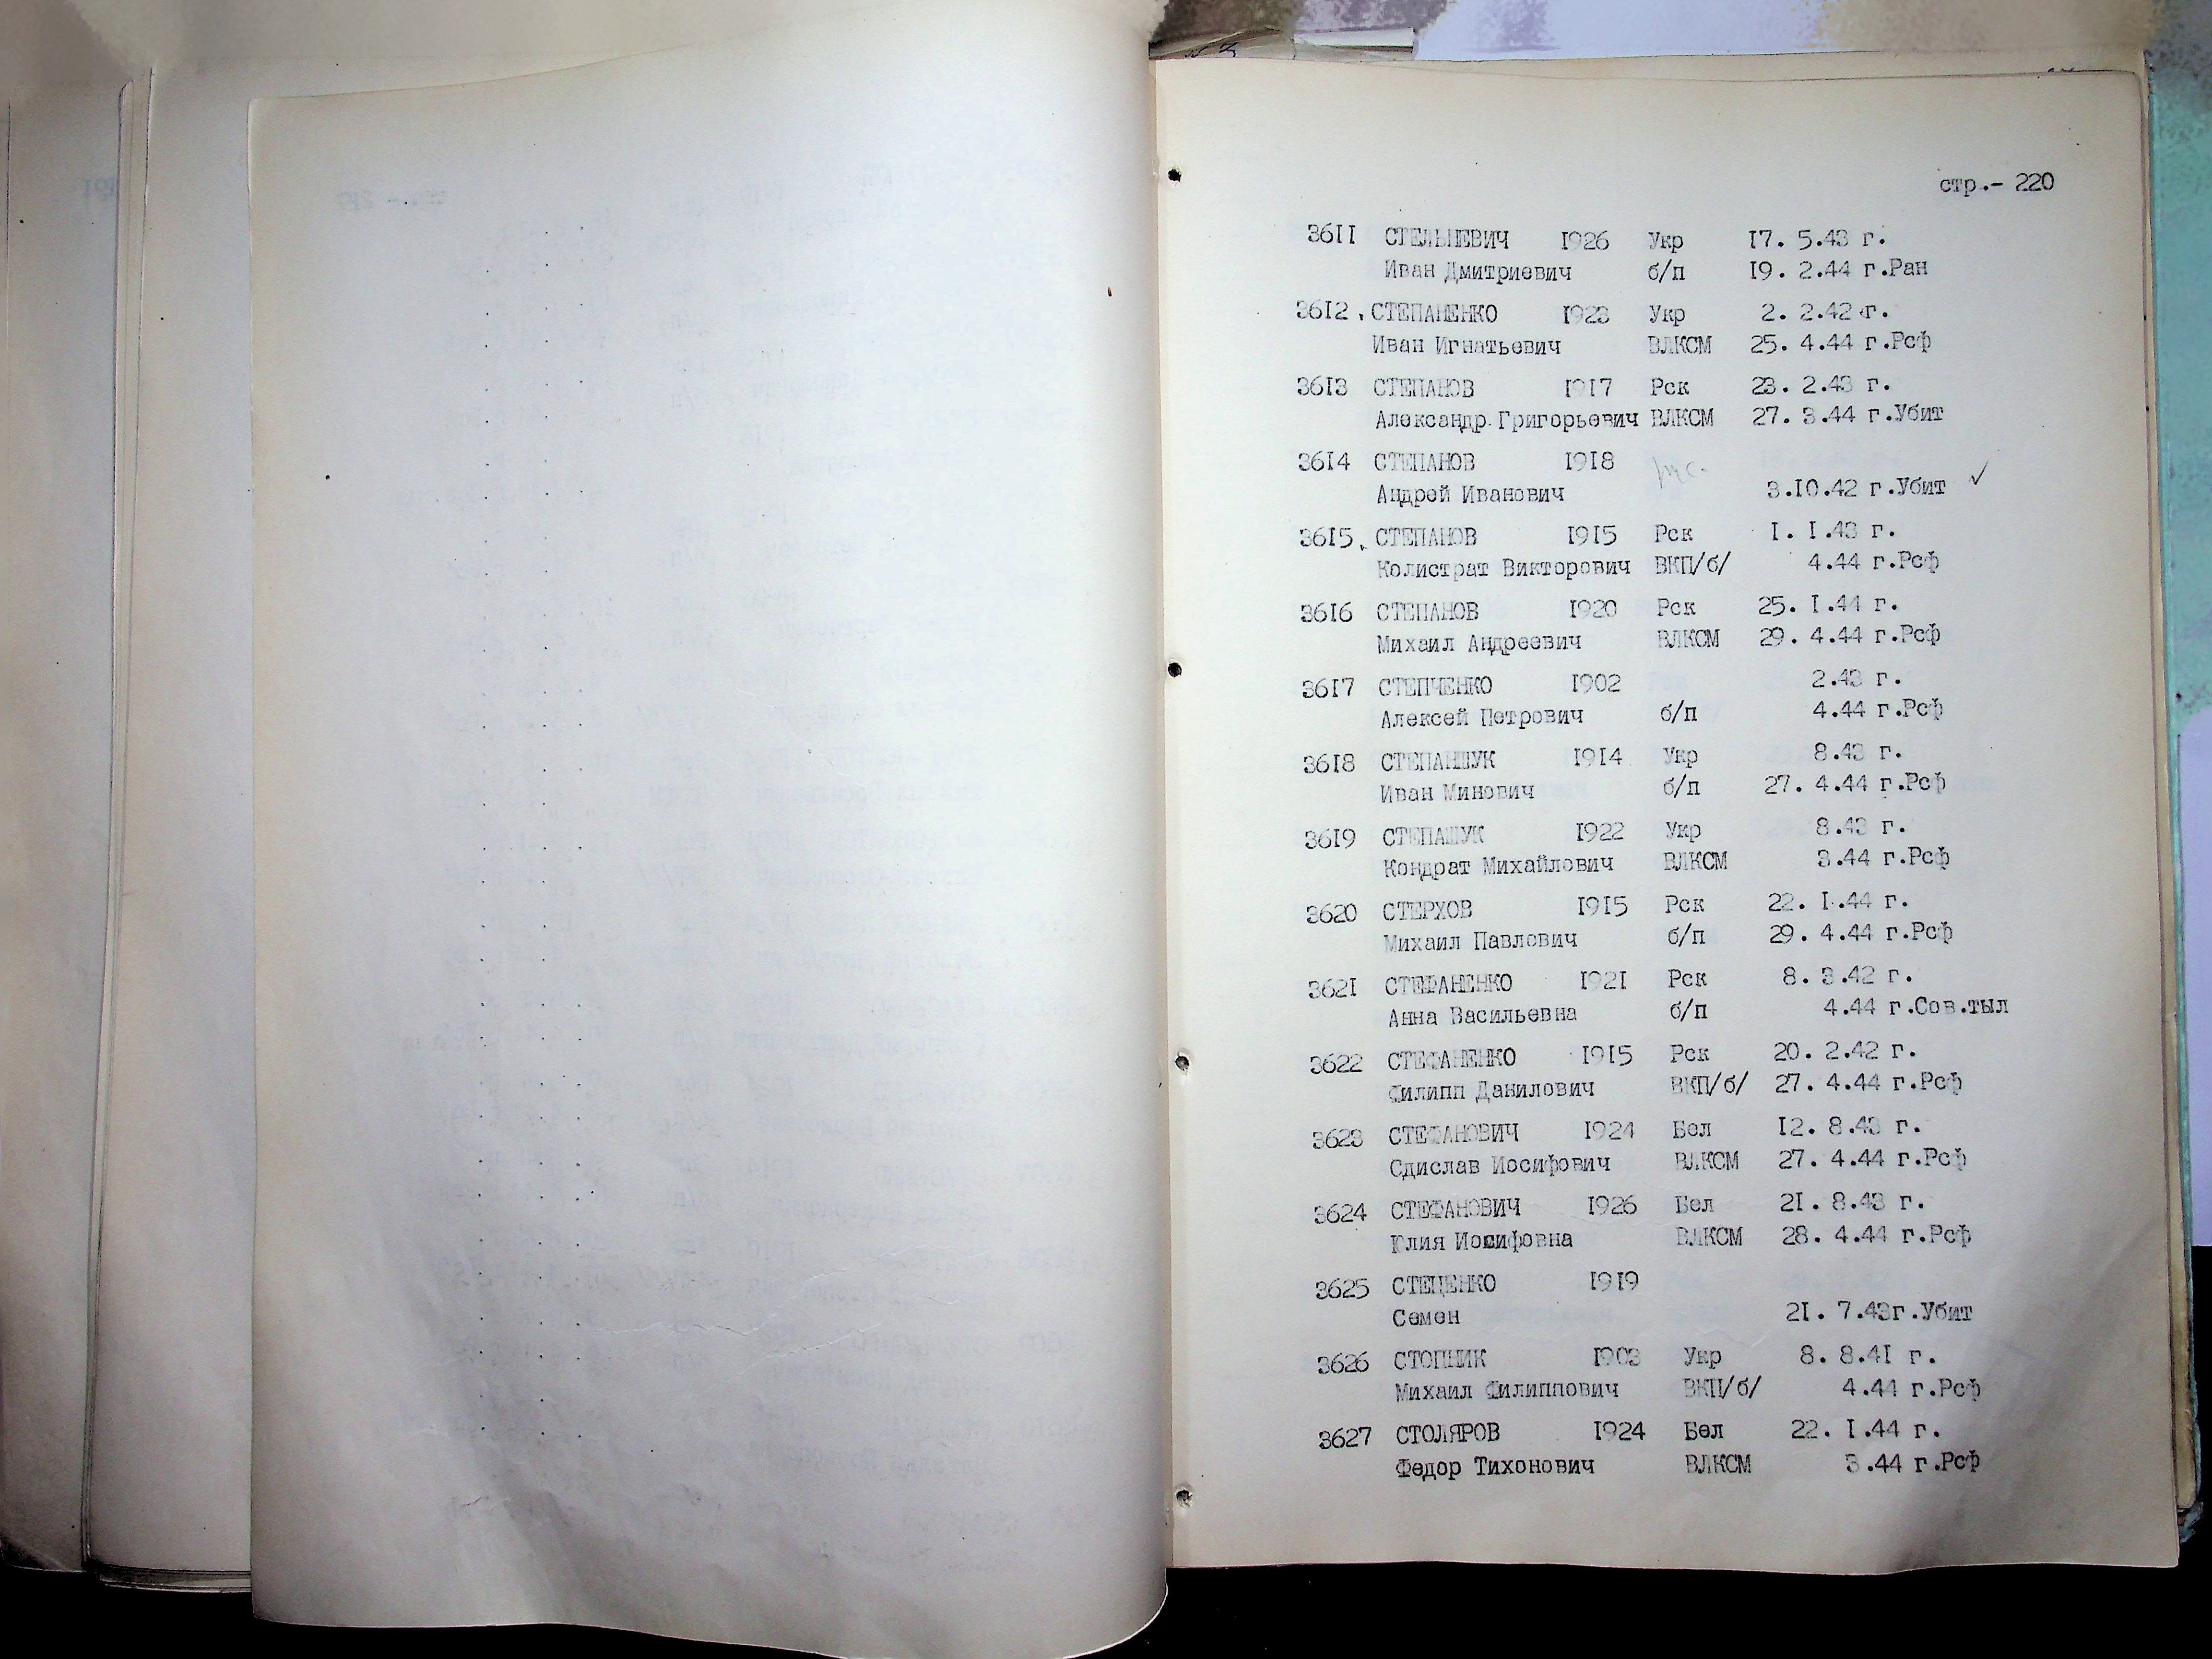 стр.- 220
3611 СТЕЛЬНЕВИЧ 1926 Укр 17. 5.43 г.
Иван Дмитриевич б/п 19. 2.44 г.Ран
3612 СТЕПАНЕНКО 1923 Укр 2. 2.42 г.
Иван Игнатьевич ВЛКСМ 25. 4.44 г.Рсф
3613 СТЕПАНОВ 1917 Рск 23. 2.43 г.
Александр Григорьевич ВЛКСМ 27. 3.44 г.Убит
3614 СТЕПАНОВ 1918
Андрей Иванович 3.10.42 г.Убит ✓
3615 СТЕПАНОВ 1915 Рск 1. 1.43 г.
Колистрат Викторович ВКП/б/ 4.44 г.Рсф
3616 СТЕПАНОВ 1920 Рск 25. 1.44 г.
Михаил Андреевич ВЛКСМ 29. 4.44 г.Рсф
3617 СТЕПЧЕНКО 1902 2.43 г.
Алексей Петрович б/п 4.44 г.Рсф
3618 СТЕПАНШУК 1914 Укр 8.43 г.
Иван Минович б/п 27. 4.44 г.Рсф
3619 СТЕПАШУК 1922 Укр 8.43 г.
Кондрат Михайлович ВЛКСМ 3.44 г.Рсф
3620 СТЕРХОВ 1915 Рск 22. 1.44 г.
Михаил Павлович б/п 29. 4.44 г.Рсф
3621 СТЕФАНЕНКО 1921 Рск 8. 3.42 г.
Анна Васильевна б/п 4.44 г.Сов.тыл
3622 СТЕФАНЕНКО 1915 Рск 20. 2.42 г.
Филипп Данилович ВКП/б/ 27. 4.44 г.Рсф
3623 СТЕФАНОВИЧ 1924 Бел 12. 8.43 г.
Сдислав Иосифович ВЛКСМ 27. 4.44 г.Рсф
3624 СТЕФАНОВИЧ 1926 Бел 21. 8.43 г.
Юлия Иосифовна ВЛКСМ 28. 4.44 г.Рсф
3625 СТЕЦЕНКО 1919
Семен 21. 7.43г.Убит
3626 СТОПНИК 1903 Укр 8. 8.41 г.
Михаил Филиппович ВКП/б/ 4.44 г.Рсф
3627 СТОЛЯРОВ 1924 Бел 22. 1.44 г.
Федор Тихонович ВЛКСМ 3.44 г.Рсф